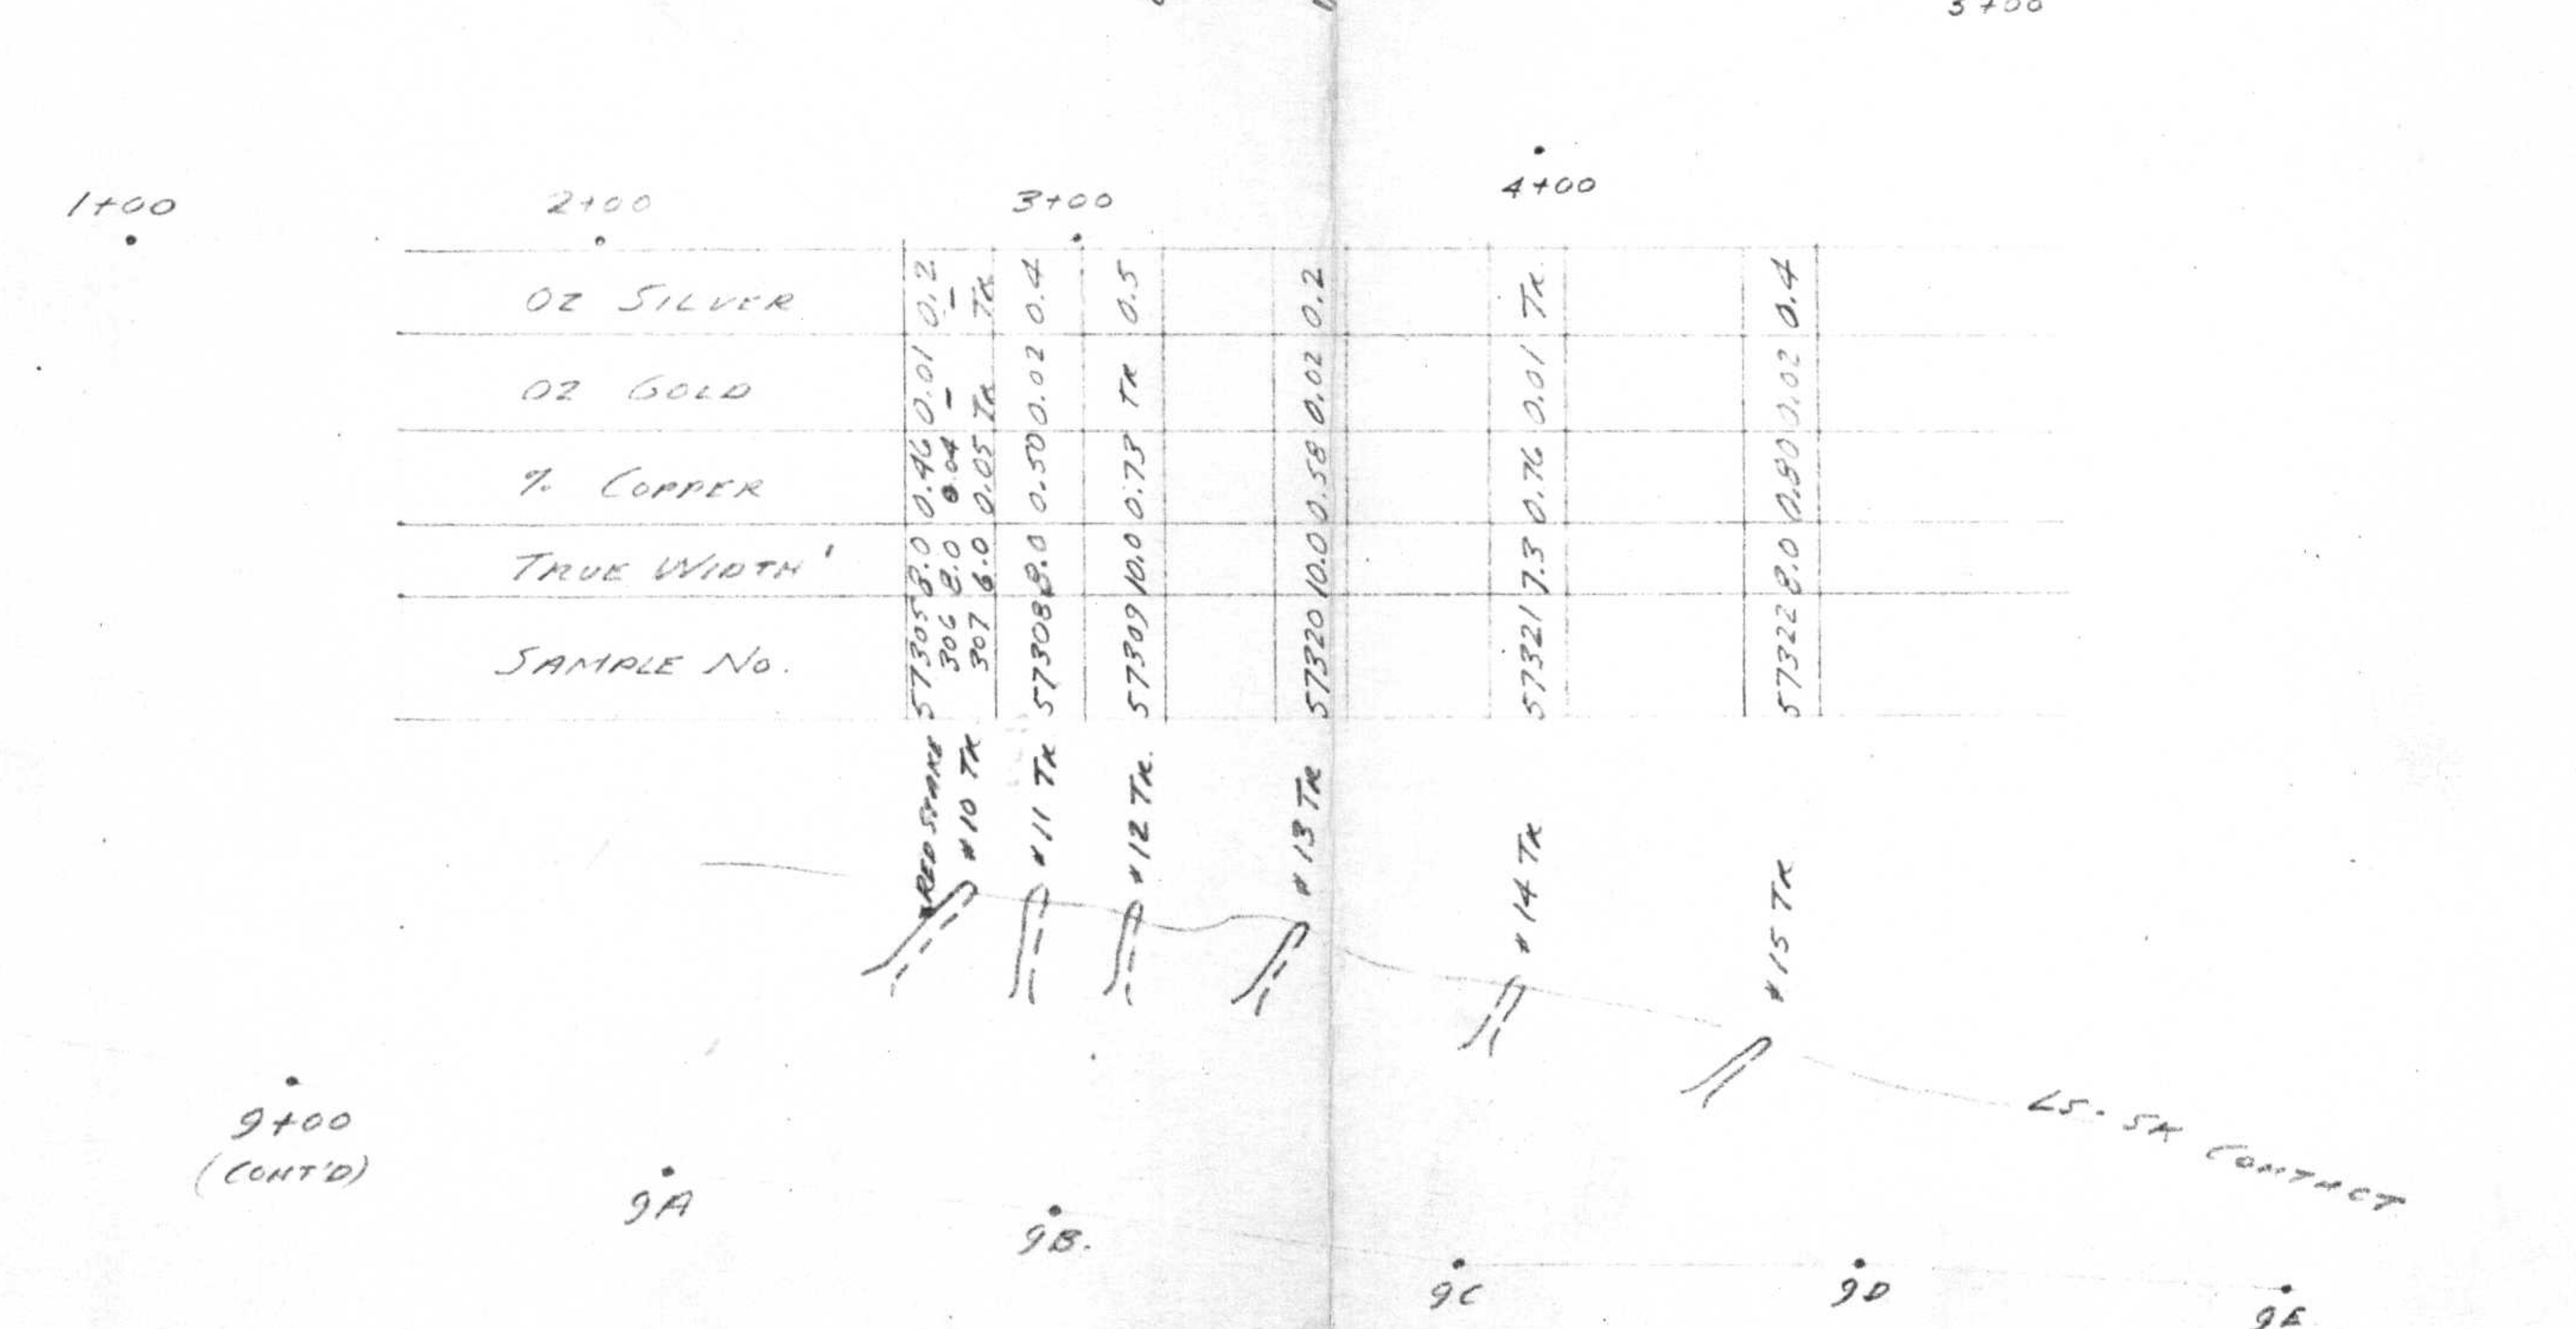 5+00
4+00
1+00
2+00
3+00
OZ SILVER 0.2 – TR 0.4 0.5 0.2 TR 0.4
OZ GOLD 0.01 – TR 0.02 TR 0.02 0.01 0.02
% COPPER 0.46 0.04 0.05 0.50 0.73 0.58 0.76 0.80
TRUE WIDTH' 8.0 8.0 6.0 8.0 10.0 10.0 7.3 8.0
SAMPLE NO. 57305 306 307 57308 57309 57320 57321 57322
RED STAKE
#10 TR
#11 TR
#12 TR.
#13 TR
#14 TR
#15 TR
LS - SK CONTACT
9+00
(CONT'D)
9A
9B.
9C
9D
9E